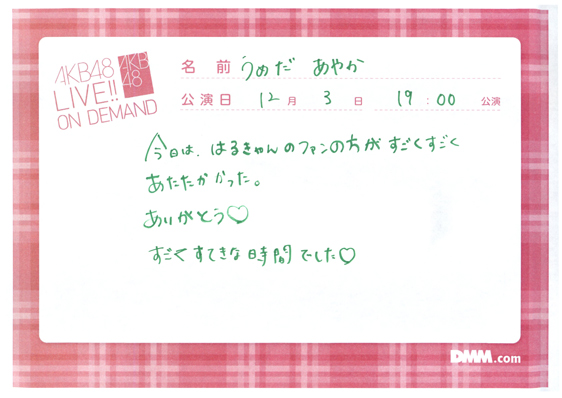 AKB48
LIVE!!
ON DEMAND
AKB
48
名前 うめだ あやか
公演日 12月 3日 19:00 公演
今日は、はるきゃんのファンの方がすごくすごく
あたたかかった。
ありがとう♡
すごくすてきな時間でした♡
DMM.com